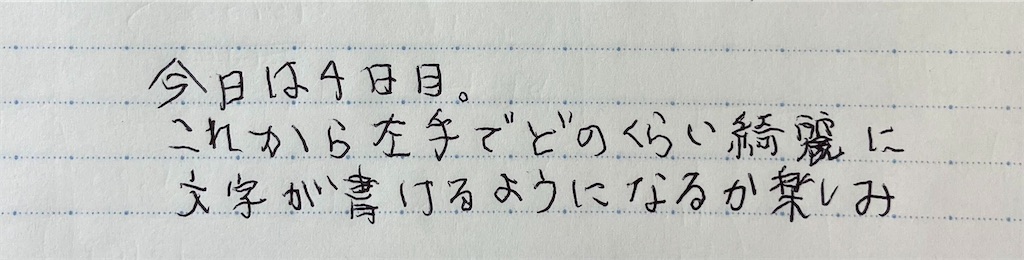 今日は4日目。
これから左手でどのくらい綺麗に
文字が書けるようになるか楽しみ